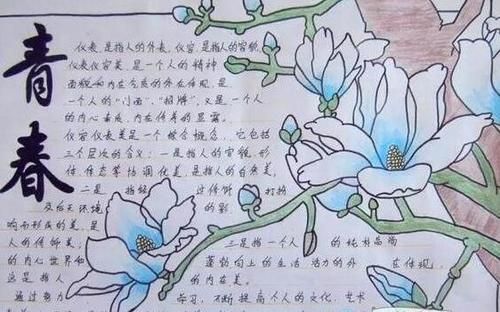 青春
仪表,是指人的外表,仪容,是指人的容貌
仪表仪容美,是一个人的精神
面貌和内在气质的外在体现,是
一个人的“门面”,“招牌”,又是一个人
的内心素质,内在修养的显露。
仪容仪表美是一个综合概念,它包括
三个层次的含义:一是指人的容貌,形
体,体态等协调优美,是指人的自然美,
二是 指经 过修饰 打扮
及后天环境 的影
响而形成的美,是
人的修饰美; 三是指一个人 的纯朴高尚
的内心世界和 蓬勃向上的生活 活力的外 在体现,
这是指人 的内在美。
通过努力 学习,不断提高个人的文化、艺术